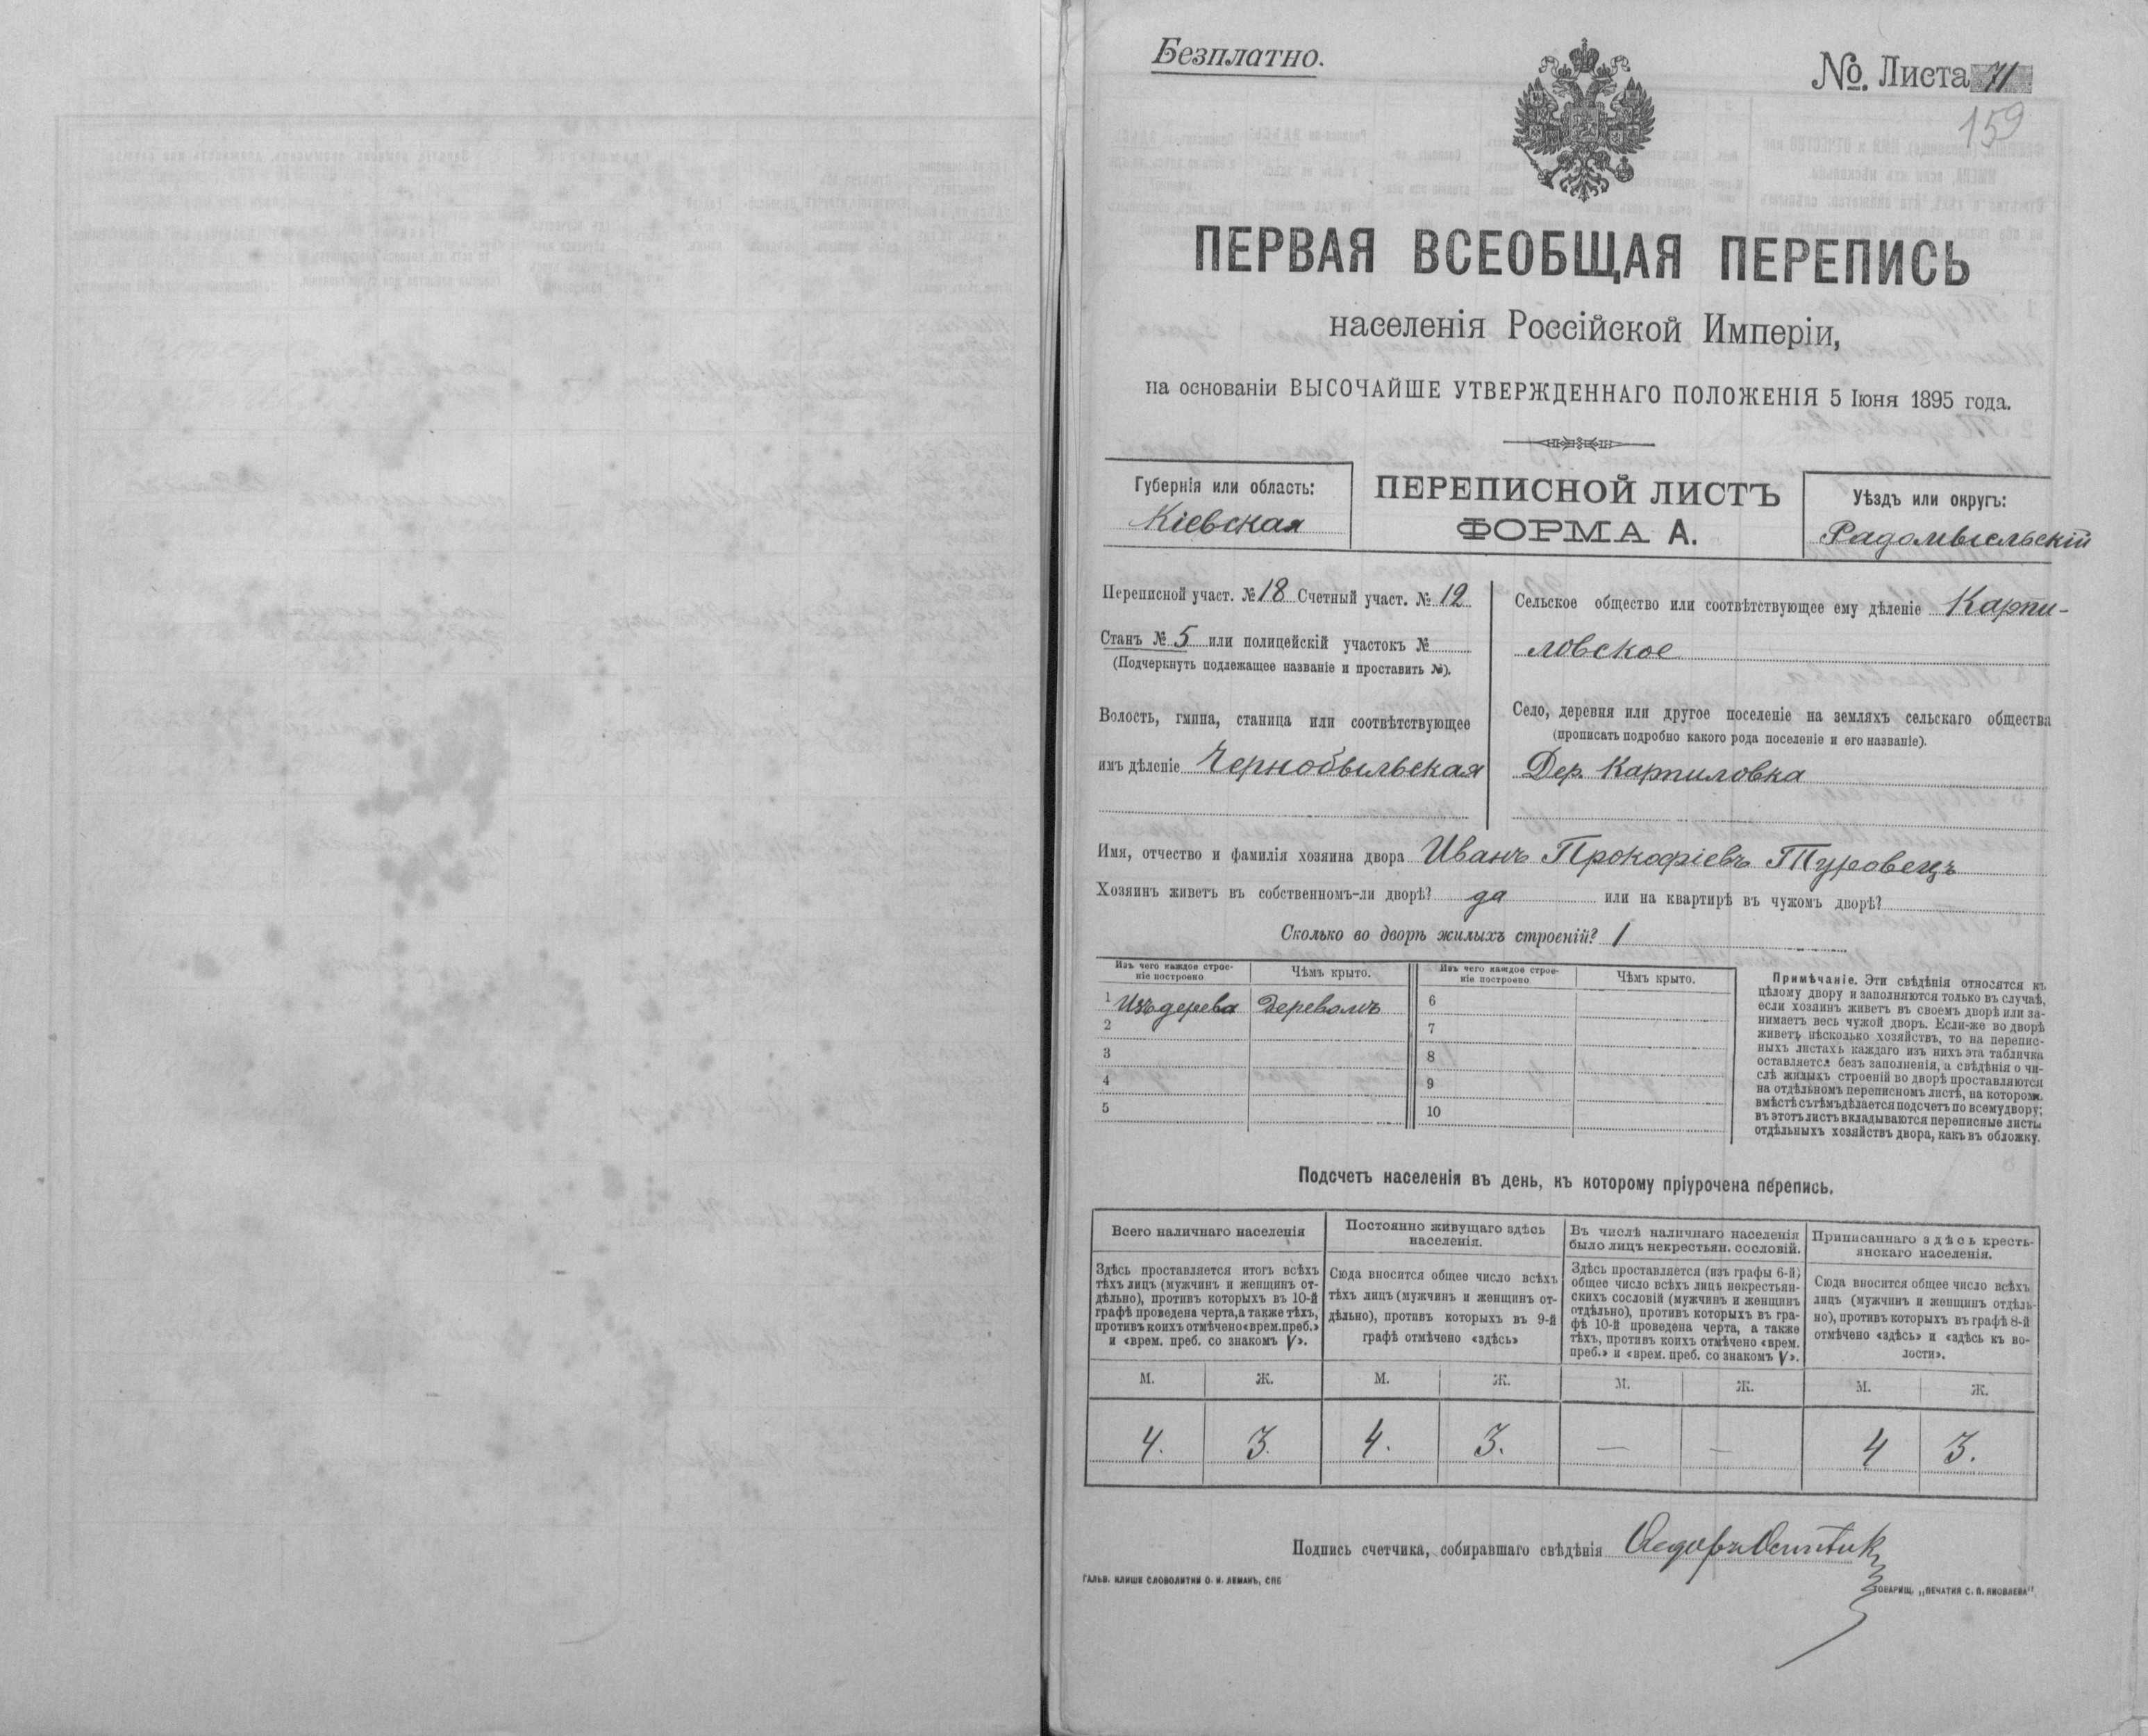 Безплатно.
№. Листа 71
159
ПЕРВАЯ ВСЕОБЩАЯ ПЕРЕПИСЬ
населенія Россійской Имперіи,
на основаніи ВЫСОЧАЙШЕ УТВЕРЖДЕННАГО ПОЛОЖЕНІЯ 5 Іюня 1895 года.
Губернія или область:
Кіевская
ПЕРЕПИСНОЙ ЛИСТЪ
ФОРМА А.
Уѣздъ или округъ:
Радомысльскій
Переписной участ. № 18 Счетный участ. № 12
Станъ № 5 или полицейскій участокъ №
(Подчеркнуть подлежащее названіе и проставить №).
Волость, гмина, станица или соотвѣтствующее
имъ дѣленіе Чернобыльская
Сельское общество или соотвѣтствующее ему дѣленіе Карпи-
ловское
Село, деревня или другое поселеніе на земляхъ сельскаго общества
(прописать подробно какого рода поселеніе и его названіе).
Дер. Карпиловка
Имя, отчество и фамилія хозяина двора Иванъ Прокофіевъ Туровецъ
Хозяинъ живетъ въ собственномъ-ли дворѣ? да или на квартирѣ въ чужомъ дворѣ?
Сколько во дворѣ жилыхъ строеній? 1
Изъ чего каждое строе-
ніе построено
Чѣмъ крыто.
1 Изъ дерева Деревомъ
2
3
4
5
Изъ чего каждое строе-
ніе построено
Чѣмъ крыто.
6
7
8
9
10
Примѣчаніе. Эти свѣдѣнія относятся къ
цѣлому двору и заполняются только въ случаѣ,
если хозяинъ живетъ въ своемъ дворѣ или за-
нимаетъ весь чужой дворъ. Если-же во дворѣ
живетъ нѣсколько хозяйствъ, то на перепис-
ныхъ листахъ каждаго изъ нихъ эта табличка
оставляется безъ заполненія, а свѣдѣнія о чи-
слѣ жилыхъ строеній во дворѣ проставляются
на отдѣльномъ переписномъ листѣ, на которомъ
вмѣстѣ съ тѣмъ дѣлается подсчетъ по всему двору;
въ этотъ листъ вкладываются переписные листы
отдѣльныхъ хозяйствъ двора, какъ въ обложку.
Подсчетъ населенія въ день, къ которому пріурочена перепись.
Всего наличнаго населенія
Здѣсь проставляется итогъ всѣхъ
тѣхъ лицъ (мужчинъ и женщинъ от-
дѣльно), противъ которыхъ въ 10-й
графѣ проведена черта, а также тѣхъ,
противъ коихъ отмѣчено «врем. преб.»
и «врем. преб. со знакомъ V».
М. Ж.
4. 3.
Постоянно живущаго здѣсь
населенія.
Сюда вносится общее число всѣхъ
тѣхъ лицъ (мужчинъ и женщинъ от-
дѣльно), противъ которыхъ въ 9-й
графѣ отмѣчено «здѣсь»
М. Ж.
4. 3.
Въ числѣ наличнаго населенія
было лицъ некрестьян. сословій.
Здѣсь проставляется (изъ графы 6-й)
общее число всѣхъ лицъ некрестьян-
скихъ сословій (мужчинъ и женщинъ
отдѣльно), противъ которыхъ въ гра-
фѣ 10-й проведена черта, а также
тѣхъ, противъ коихъ отмѣчено «врем.
преб.» и «врем. преб. со знакомъ V».
М. Ж.
— —
Приписаннаго здѣсь кресть-
янскаго населенія.
Сюда вносится общее число всѣхъ
лицъ (мужчинъ и женщинъ отдѣль-
но), противъ которыхъ въ графѣ 8-й
отмѣчено «здѣсь» и «здѣсь къ во-
лости».
М. Ж.
4 3.
Подпись счетчика, собиравшаго свѣдѣнія
ГАЛЬВ. КЛИШЕ СЛОВОЛИТНИ О. И. ЛЕМАНЪ, СПБ
ТОВАРИЩ. „ПЕЧАТНЯ С. П. ЯКОВЛЕВА“